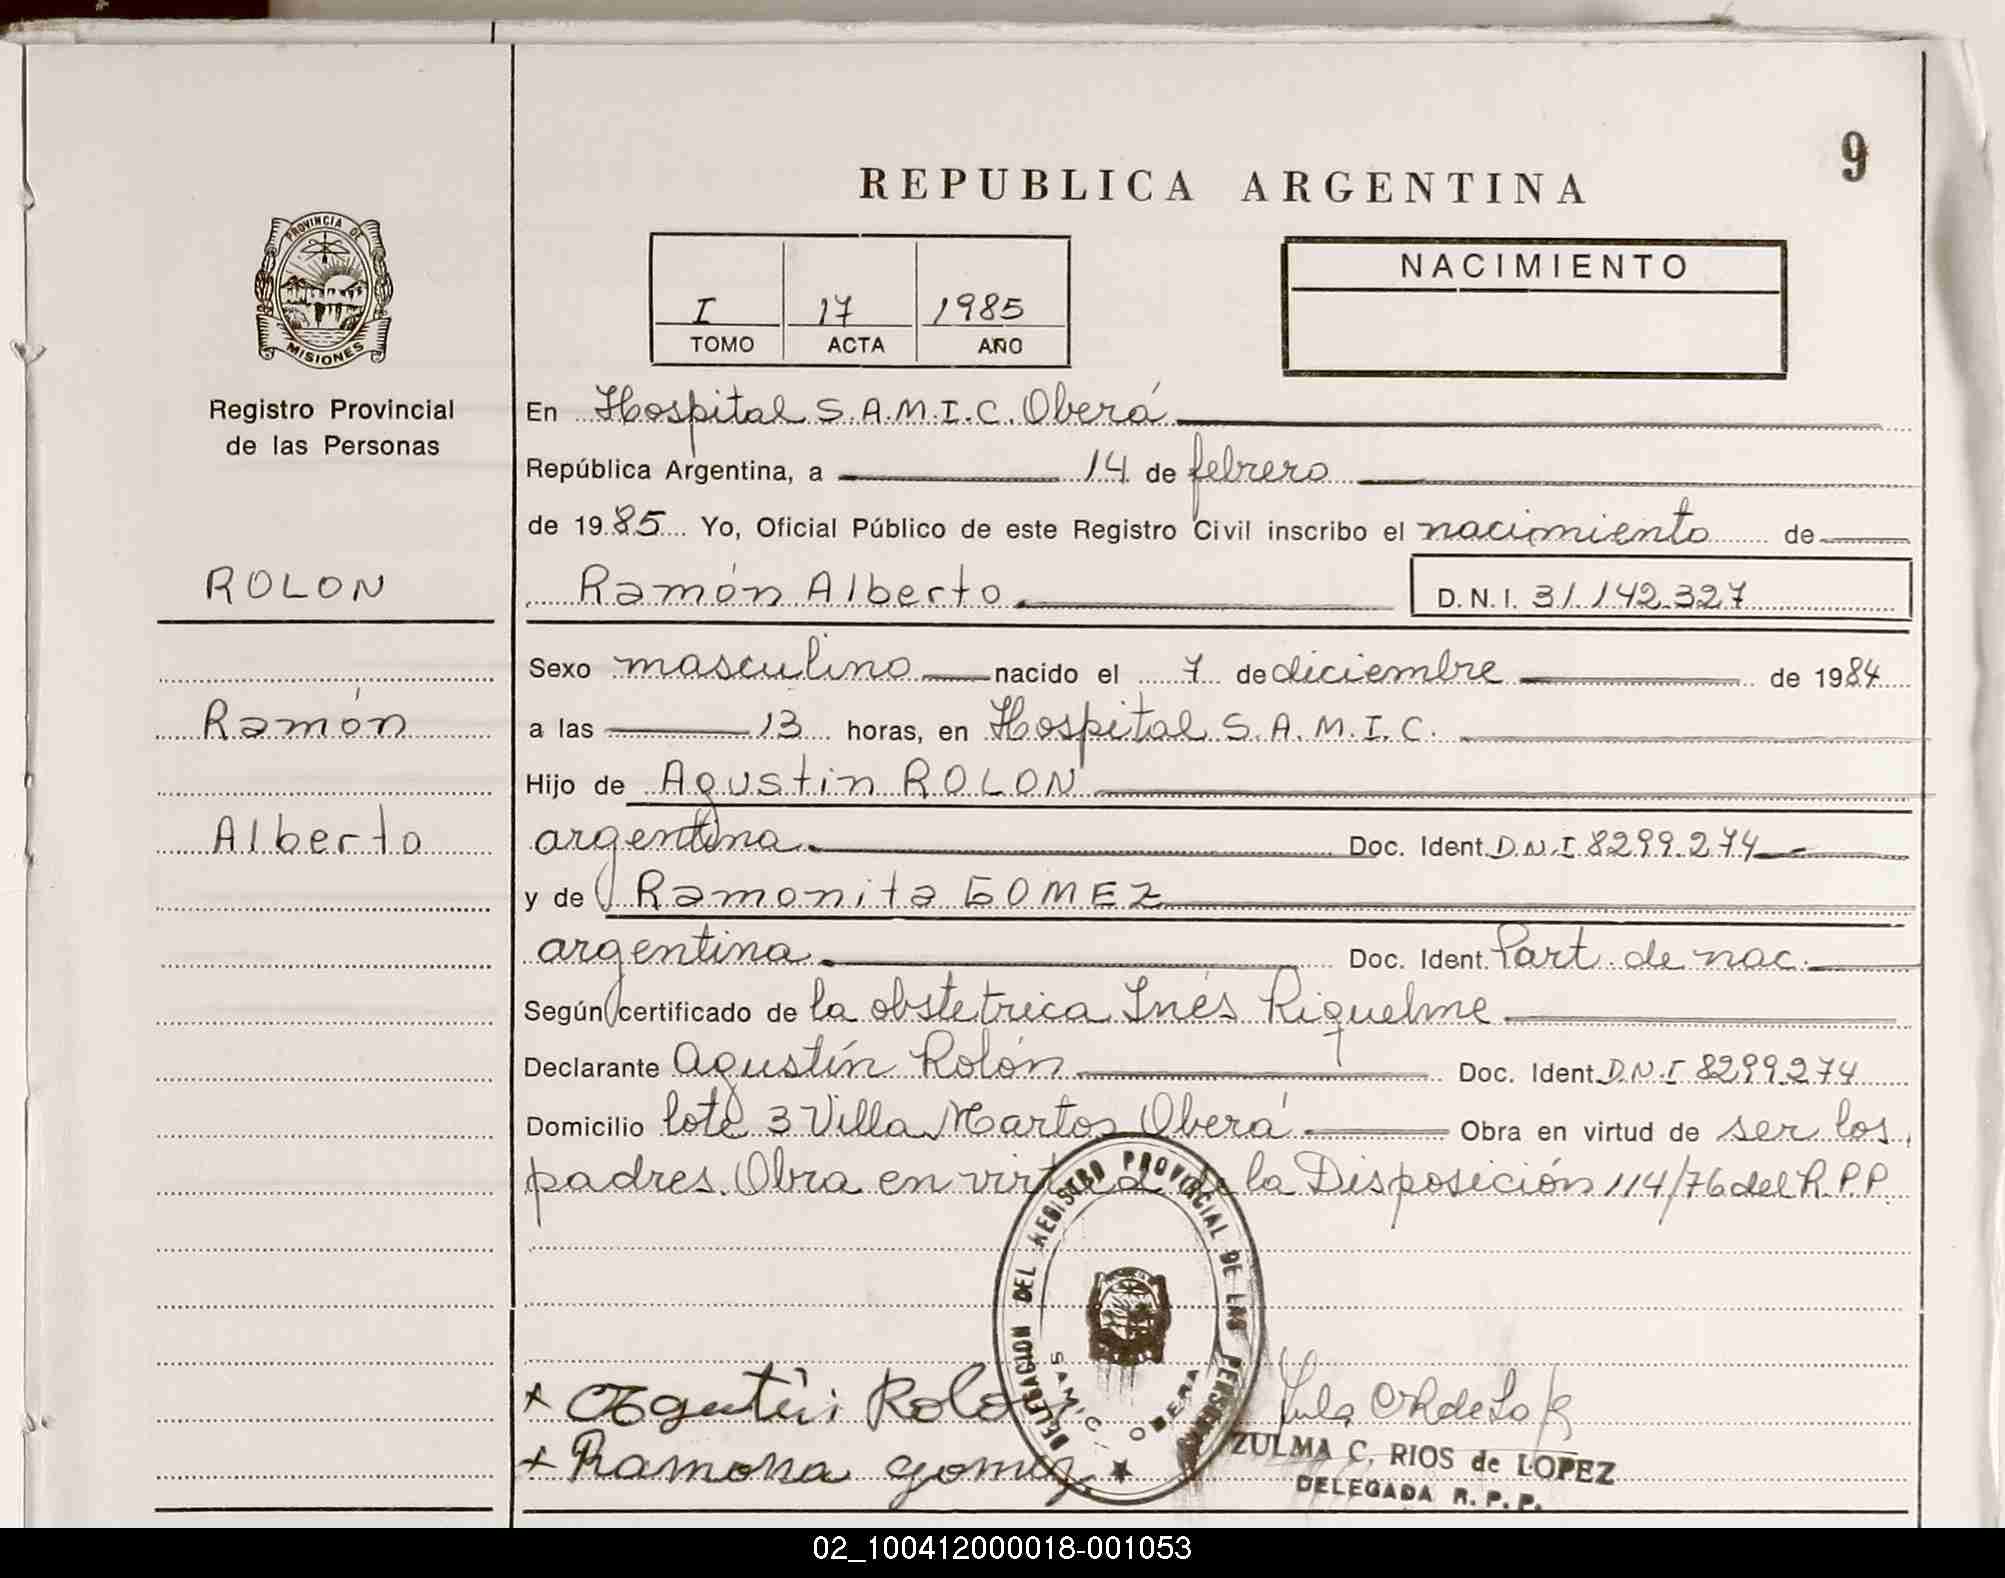 9
REPUBLICA ARGENTINA
PROVINCIA DE
MISIONES
Registro Provincial
de las Personas
I 17 1985
TOMO ACTA AÑO
NACIMIENTO
En Hospital S.A.M.I.C. Oberá
República Argentina, a 14 de febrero
de 1985 Yo, Oficial Público de este Registro Civil inscribo el nacimiento de
ROLON
Ramón Alberto D.N.I. 31.142.327
Sexo masculino nacido el 7 de diciembre de 1984
Ramón
a las 13 horas, en Hospital S.A.M.I.C.
Hijo de Agustin ROLON
Alberto
argentina Doc. Ident. D.N.I 8299.274
y de Ramonita GOMEZ
argentina Doc. Ident. Part. de nac.
Según certificado de la obstetrica Inés Riquelme
Declarante Agustín Rolón Doc. Ident. D.N.I 8299.274
Domicilio lote 3 Villa Martos Oberá Obra en virtud de ser los
padres. Obra en virtud de la Disposición 114/76 del R.P.P.
DELEGACION DEL REGISTRO PROVINCIAL DE LAS PERSONAS
SAMIC - OBERA
x Agustin Rolon
x Ramona gomez
ZULMA C. RIOS de LOPEZ
DELEGADA R. P. P.
02_100412000018-001053